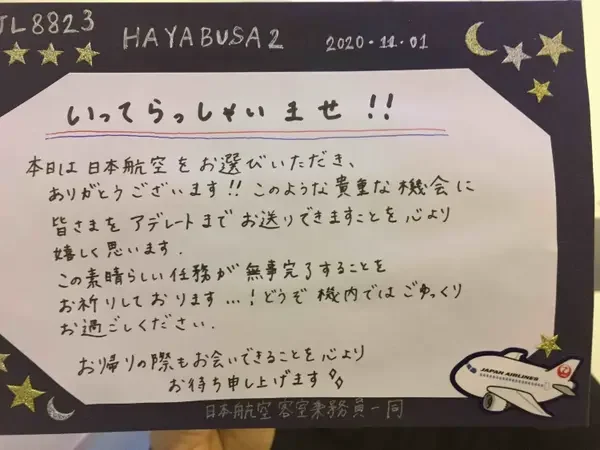 JL8823
HAYABUSA2
2020.11.01
いってらっしゃいませ!!
本日は日本航空をお選びいただき、
ありがとうございます!! このような貴重な機会に
皆さまをアデレートまでお送りできますことを心より
嬉しく思います.
この素晴らしい任務が無事完了することを
お祈りしております...! どうぞ機内ではごゆっくり
お過ごしください.
お帰りの際もお会いできることを心より
お待ち申し上げます
JAPAN AIRLINES
日本航空客室乗務員一同